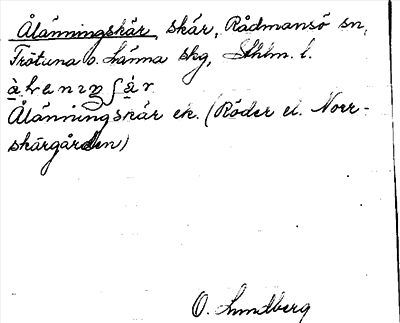 Ålänningskär, skär, Rådmansö sn,
Frötuna o. Länna skg, Sthlm. l.
Ålänningskär ek. (Röder el. Norr-
skärgården)
O. Lundberg